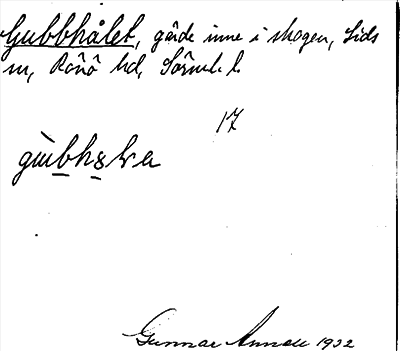 Gubbhålet, gärde inne i skogen, Lids
sn, Rönö hd, Sörml. l.
17
Gunnar 1932